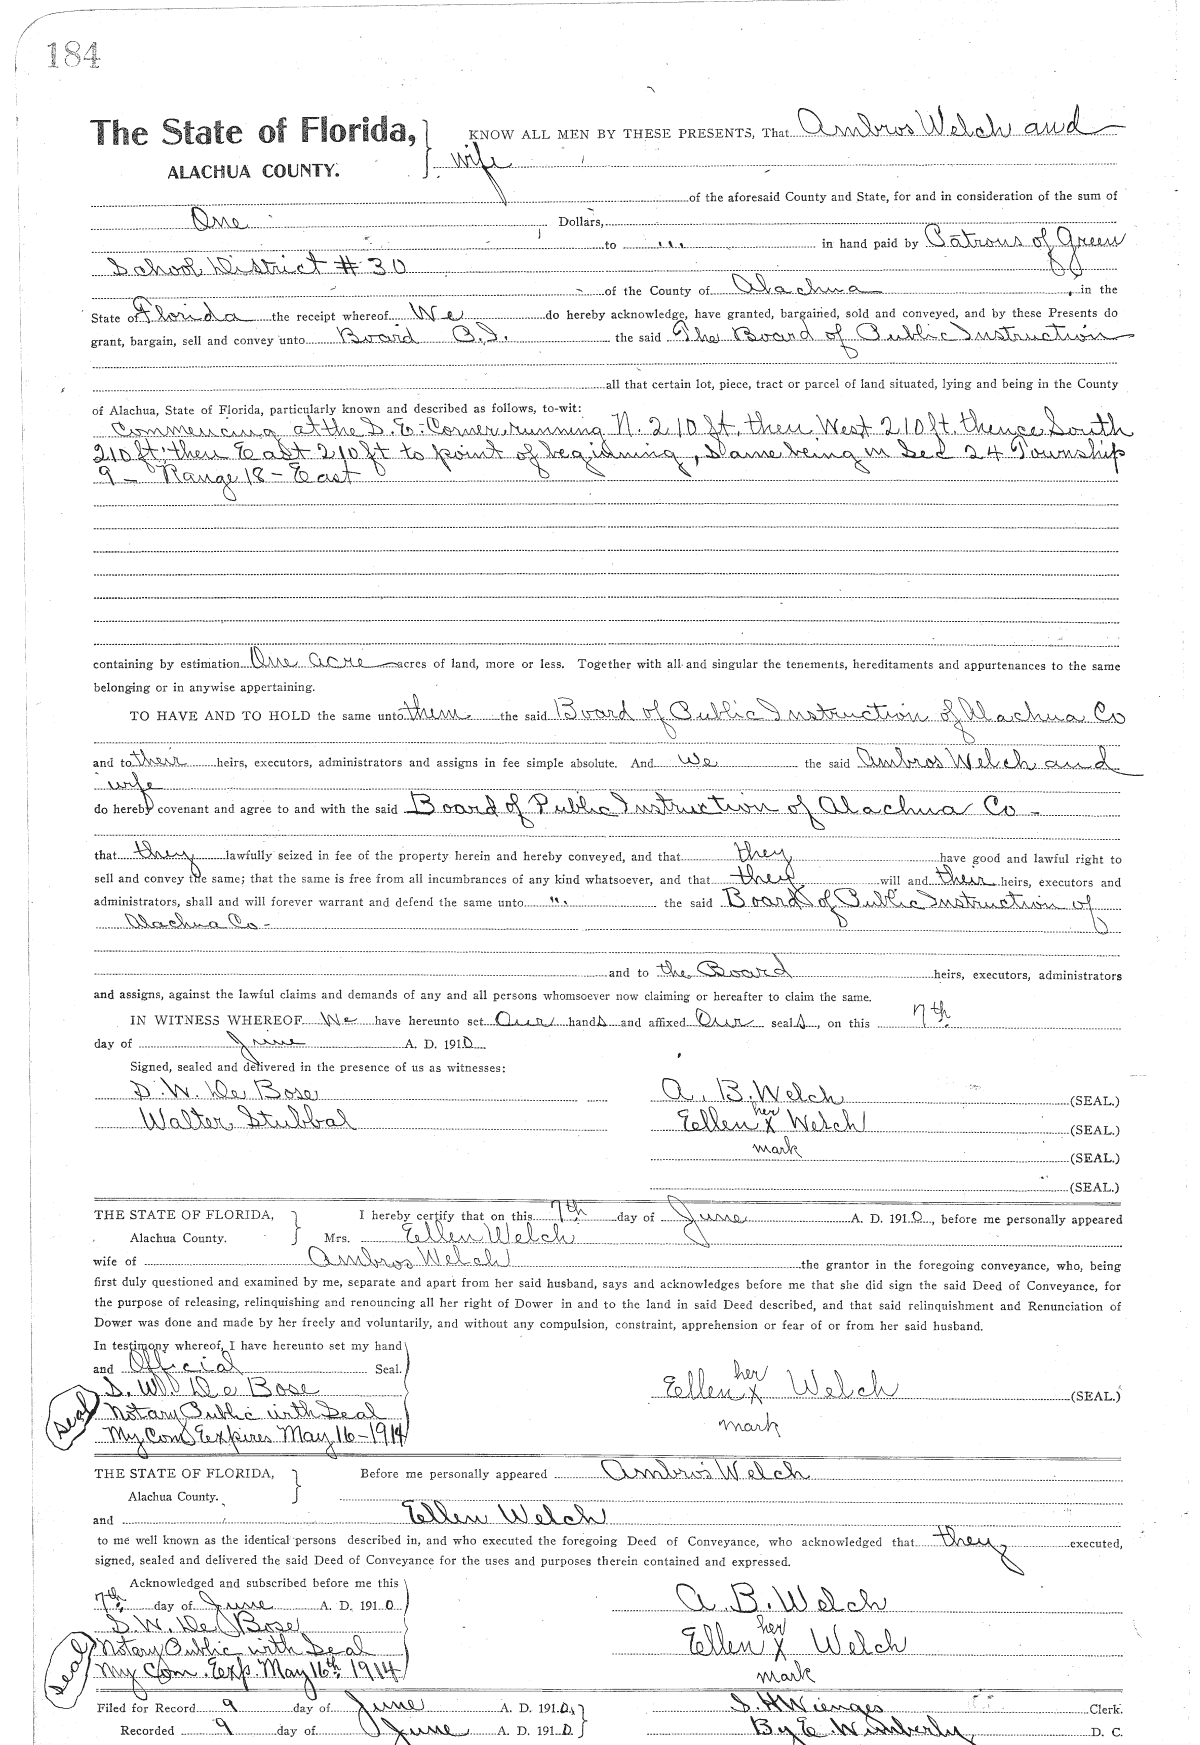 184
The State of Florida, KNOW ALL MEN BY THESE PRESENTS, That Ambros Welch and
ALACHUA COUNTY. wife
of the aforesaid County and State, for and in consideration of the sum of
One Dollars,
to " in hand paid by Patrons of Green
School District # 30
of the County of Alachua, in the
State of Florida the receipt whereof We do hereby acknowledge, have granted, bargained, sold and conveyed, and by these Presents do
grant, bargain, sell and convey unto Board P.I. the said The Board of Public Instruction
all that certain lot, piece, tract or parcel of land situated, lying and being in the County
of Alachua, State of Florida, particularly known and described as follows, to-wit:
Commencing at the S.E. Corner running N. 210 ft. then West 210 ft. thence South
210 ft. then East 210 ft to point of beginning, same being in Sec 24 Township
9 - Range 18 - East
containing by estimation One acre acres of land, more or less. Together with all and singular the tenements, hereditaments and appurtenances to the same
belonging or in anywise appertaining.
TO HAVE AND TO HOLD the same unto them the said Board of Public Instruction of Alachua Co
and to their heirs, executors, administrators and assigns in fee simple absolute. And we the said Ambros Welch and
wife
do hereby covenant and agree to and with the said Board of Public Instruction of Alachua Co -
that they lawfully seized in fee of the property herein and hereby conveyed, and that they have good and lawful right to
sell and convey the same; that the same is free from all incumbrances of any kind whatsoever, and that they will and their heirs, executors and
administrators, shall and will forever warrant and defend the same unto " the said Board of Public Instruction of
Alachua Co -
and to the Board heirs, executors, administrators
and assigns, against the lawful claims and demands of any and all persons whomsoever now claiming or hereafter to claim the same.
IN WITNESS WHEREOF We have hereunto set Our hands and affixed Our seals, on this 7th
day of June A. D. 1910
Signed, sealed and delivered in the presence of us as witnesses:
S. W. De Bose A. B. Welch (SEAL.)
her
Walter Stubbal Ellen X Welch (SEAL.)
mark (SEAL.)
(SEAL.)
THE STATE OF FLORIDA, I hereby certify that on this 7th day of June A. D. 1910, before me personally appeared
Alachua County. Mrs. Ellen Welch
wife of Ambros Welch the grantor in the foregoing conveyance, who, being
first duly questioned and examined by me, separate and apart from her said husband, says and acknowledges before me that she did sign the said Deed of Conveyance, for
the purpose of releasing, relinquishing and renouncing all her right of Dower in and to the land in said Deed described, and that said relinquishment and Renunciation of
Dower was done and made by her freely and voluntarily, and without any compulsion, constraint, apprehension or fear of or from her said husband.
In testimony whereof, I have hereunto set my hand
and Official Seal. her
S. W. De Bose Ellen X Welch (SEAL.)
Seal Notary Public with Seal mark
My Com Expires May 16 - 1914
THE STATE OF FLORIDA, Before me personally appeared Ambros Welch
Alachua County.
and Ellen Welch
to me well known as the identical persons described in, and who executed the foregoing Deed of Conveyance, who acknowledged that they executed,
signed, sealed and delivered the said Deed of Conveyance for the uses and purposes therein contained and expressed.
Acknowledged and subscribed before me this
7th day of June A. D. 1910 A. B. Welch
S. W. De Bose her
Seal Notary Public with Seal Ellen X Welch
My Com. Exp. May 16th 1914 mark
Filed for Record 9 day of June A. D. 1910 S. H. Wienges Clerk.
Recorded 9 day of June A. D. 1910 By E. Wimberly D. C.